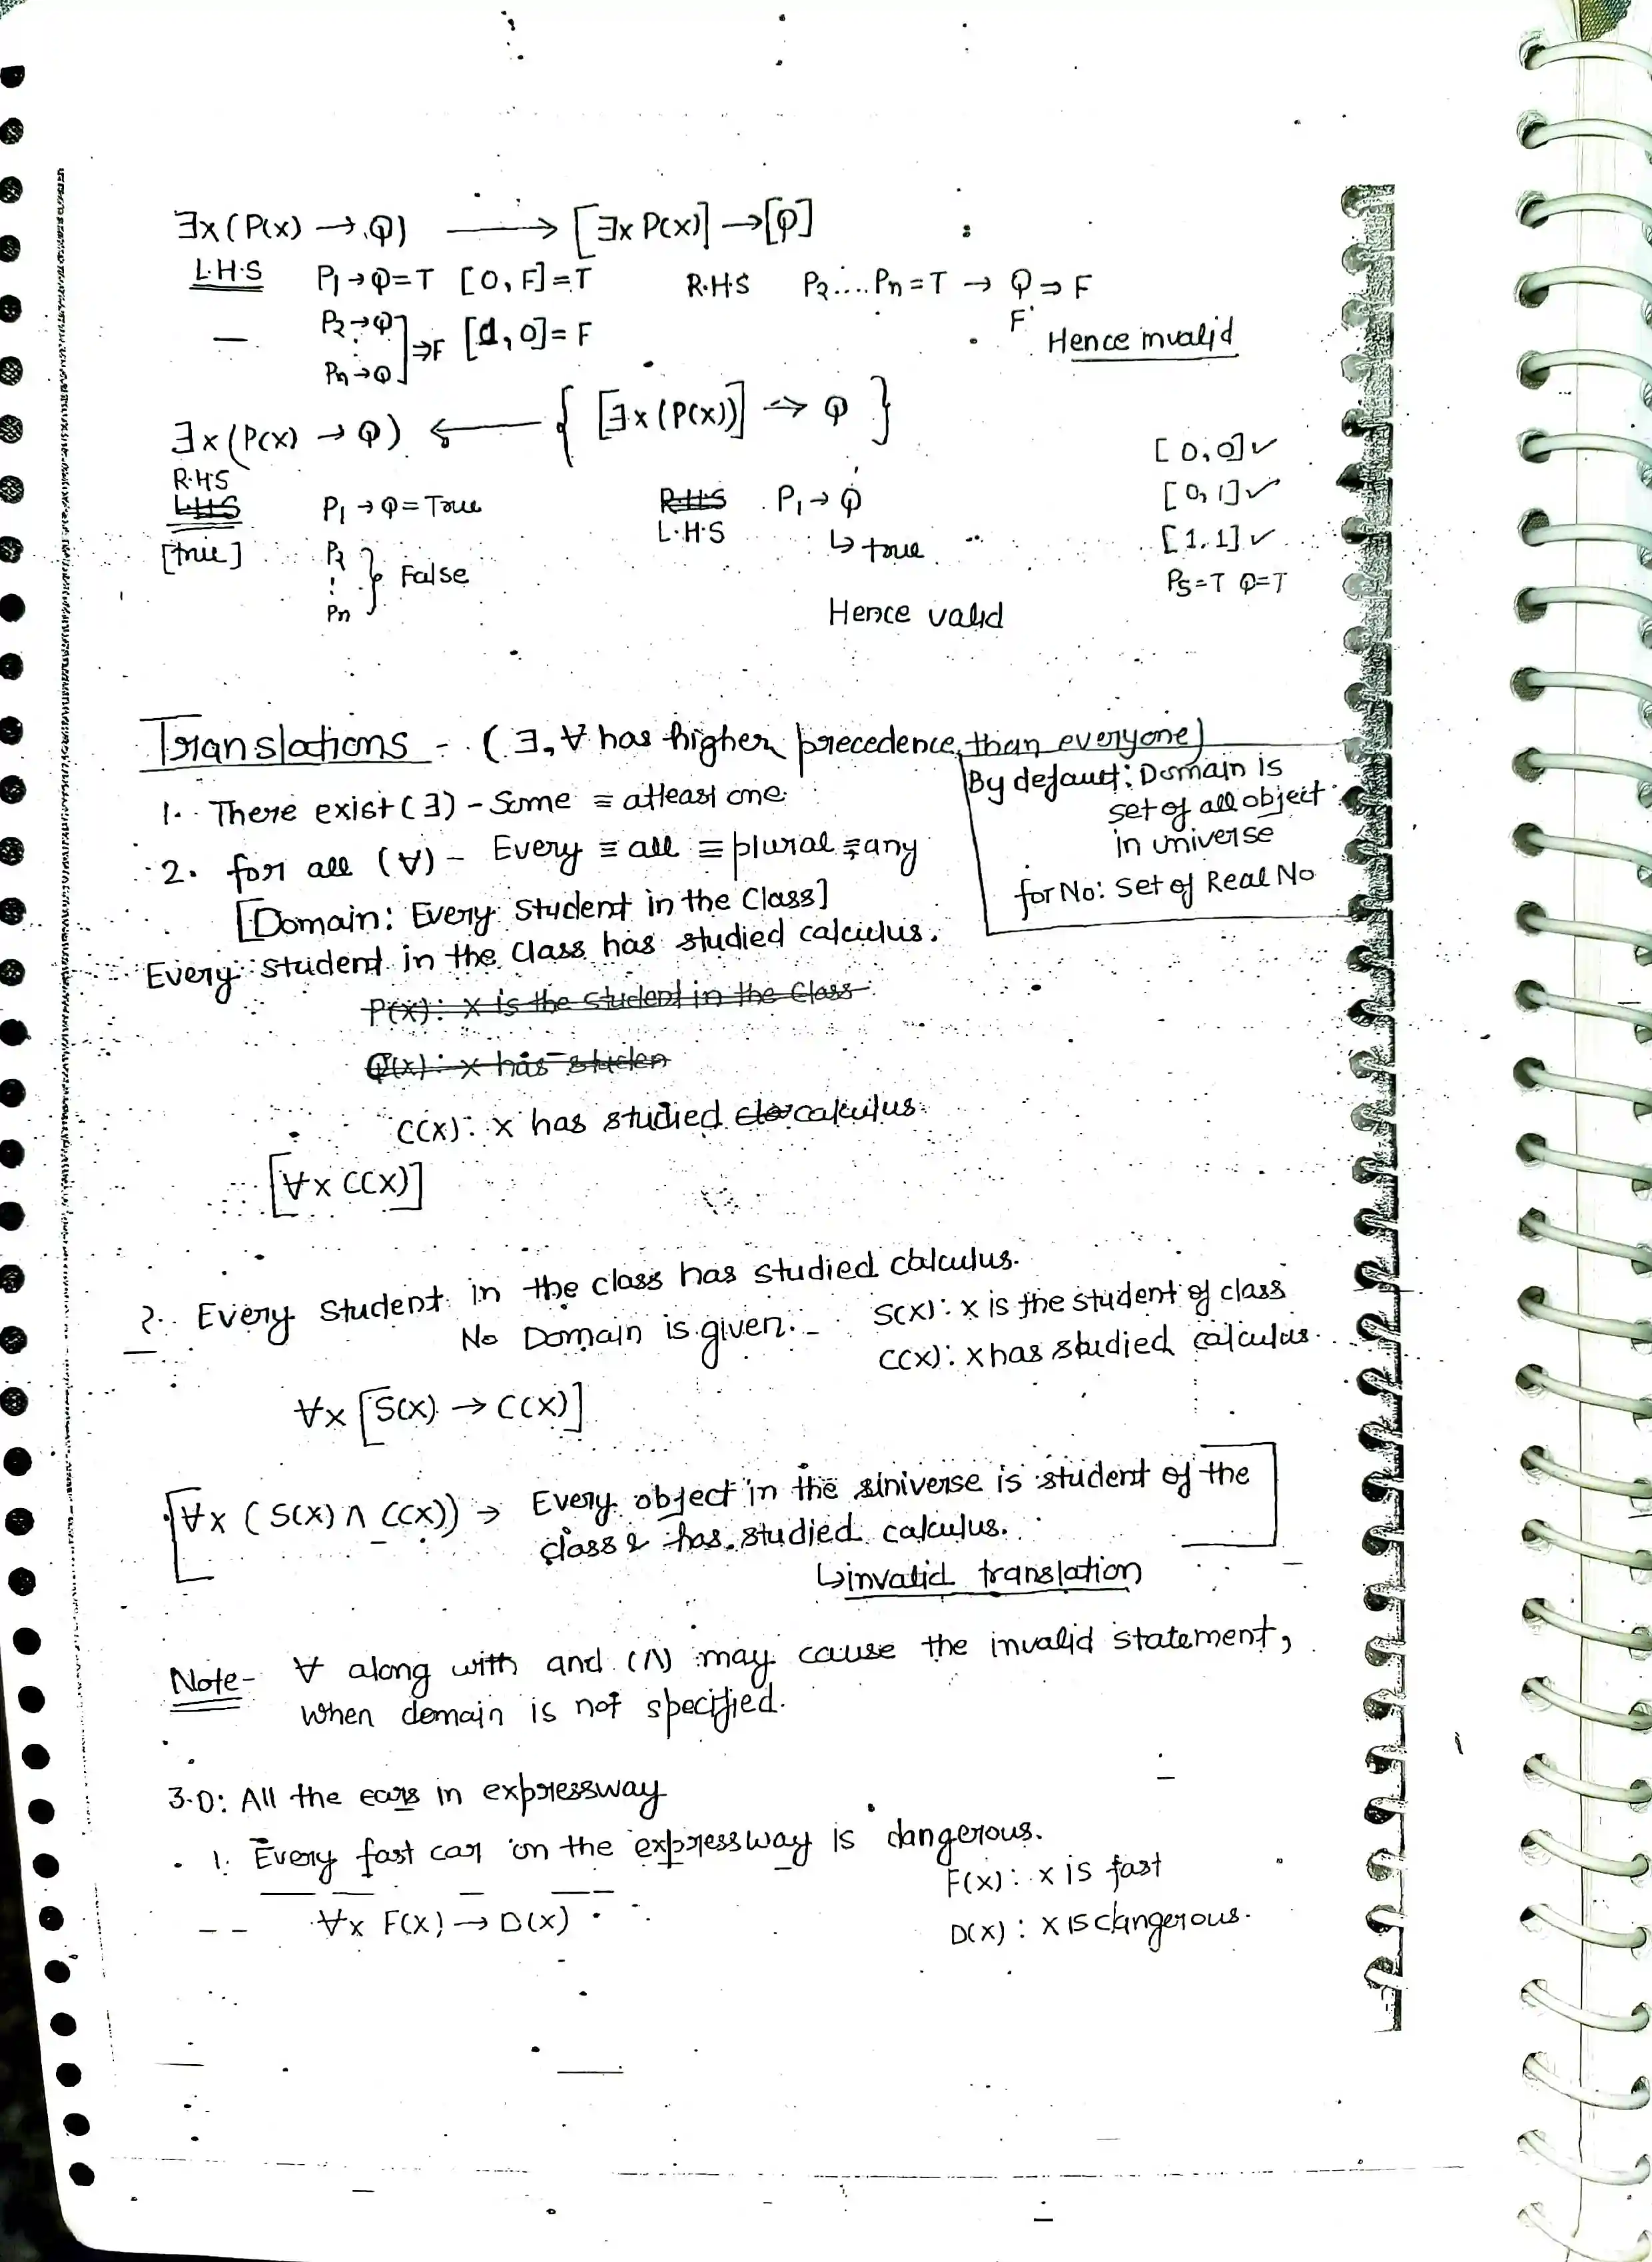 ∃x(P(x) → Q) ⟶ [∃x P(x)] → [Q]
L.H.S P1 → Q = T [0, F] = T R.H.S P2....Pn = T → Q ⇒ F
F
P2 → Q ] ⇒F [1, 0] = F
Hence invalid
Pn → Q
∃x(P(x) → Q) ⟵ { [∃x(P(x))] → Q }
[0, 0] ✓
R.H.S
L.H.S P1 → Q = True R.H.S P1 → Q [0, 1] ✓
L.H.S ↳ true [1, 1] ✓
[true] P2
⋮ } False P5 = T Q = T
Pn Hence valid
Translations - (∃, ∀ has higher precedence than everyone)
By default: Domain is
set of all object
in universe
for No: Set of Real No
1. There exist (∃) - Some ≡ atleast one
2. for all (∀) - Every ≡ all ≡ plural ≡ any
[Domain: Every student in the Class]
Every student in the class has studied calculus.
P(x): x is the student in the class
Q(x): x has studen
C(x): x has studied clo calculus.
[∀x C(x)]
2. Every student in the class has studied calculus.
No Domain is given. S(x): x is the student of class
C(x): x has studied calculus.
∀x [S(x) → C(x)]
[∀x (S(x) ∧ C(x)) → Every object in the universe is student of the
class & has studied calculus.]
↳ invalid translation
Note- ∀ along with and (∧) may cause the invalid statement,
when domain is not specified.
3. D: All the cars in expressway
1. Every fast car on the expressway is dangerous.
F(x): x is fast
∀x F(x) → D(x)
D(x): x is dangerous.